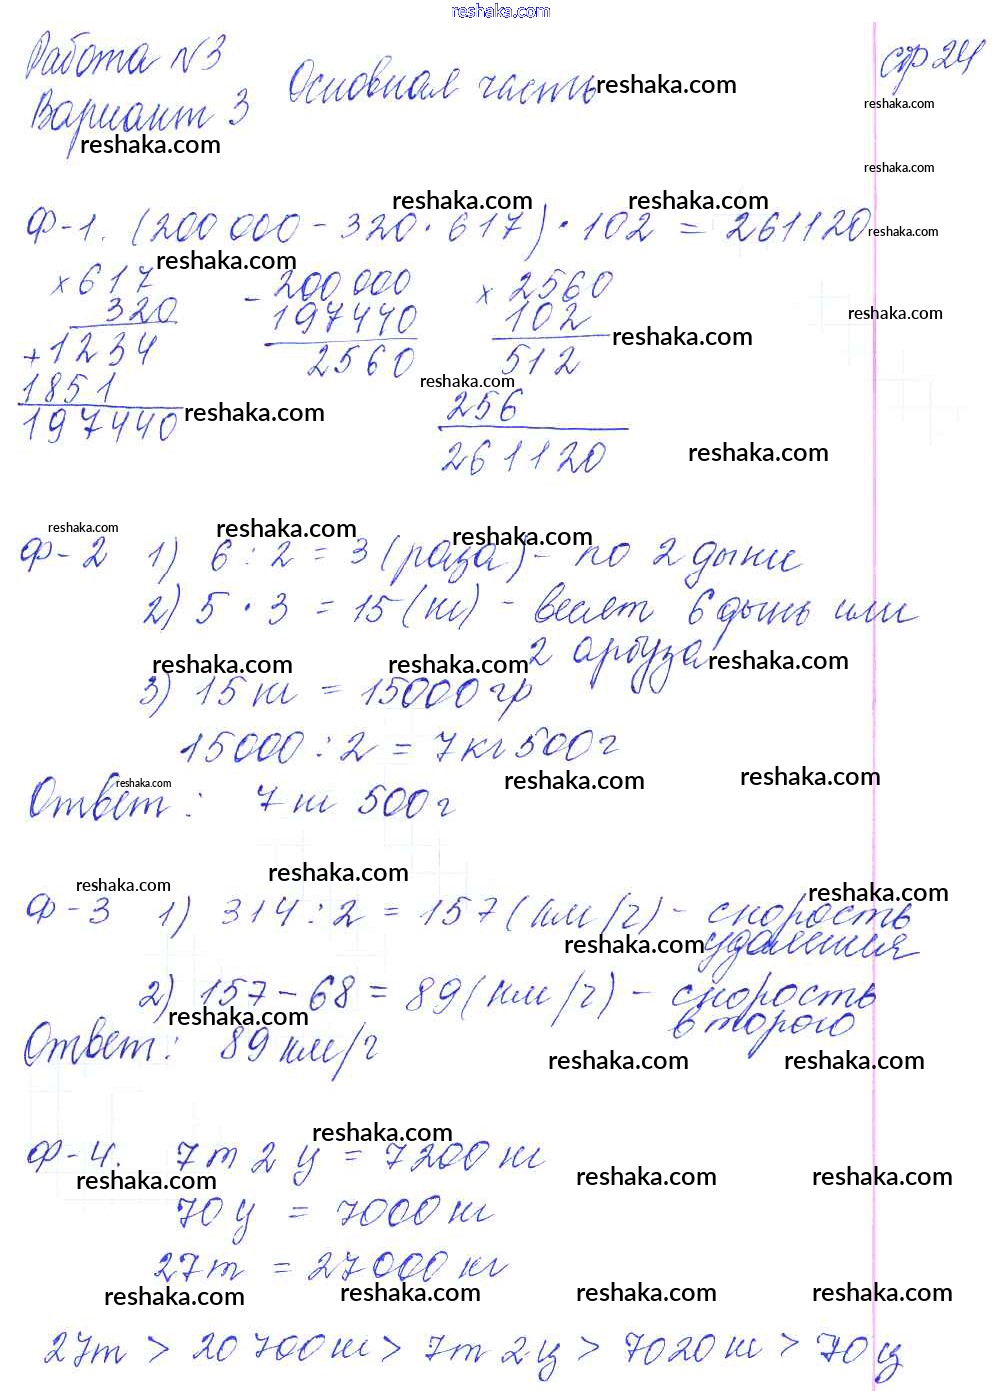 reshaka.com
Работа №3 стр 24
Вариант 3 Основная часть reshaka.com
reshaka.com
reshaka.com
reshaka.com
reshaka.com reshaka.com
Ф-1. (200 000 - 320 · 617) · 102 = 261120 reshaka.com
reshaka.com
× 617 - 200 000 × 2560
320 197440 102 reshaka.com
+ 1234 2560 512 reshaka.com
1851 reshaka.com 256
197440 reshaka.com 261120 reshaka.com
reshaka.com reshaka.com reshaka.com
Ф-2 1) 6 : 2 = 3 (раза) - по 2 дыни
2) 5 · 3 = 15 (кг) - весят 6 дынь или
2 арбуза reshaka.com
reshaka.com reshaka.com
3) 15 кг = 15000 гр
15000 : 2 = 7 кг 500 г
reshaka.com reshaka.com
Ответ: 7 кг 500 г reshaka.com
reshaka.com
reshaka.com reshaka.com
Ф-3 1) 314 : 2 = 157 (км/ч) - скорость
reshaka.com удаления
2) 157 - 68 = 89 (км/ч) - скорость
reshaka.com второго
Ответ: 89 км/ч
reshaka.com reshaka.com
reshaka.com
Ф-4. 7 т 2 ц = 7200 кг
reshaka.com reshaka.com reshaka.com
70 ц = 7000 кг
27 т = 27000 кг
reshaka.com reshaka.com reshaka.com reshaka.com
27 т > 20 700 кг > 7 т 2 ц > 7020 кг > 70 ц